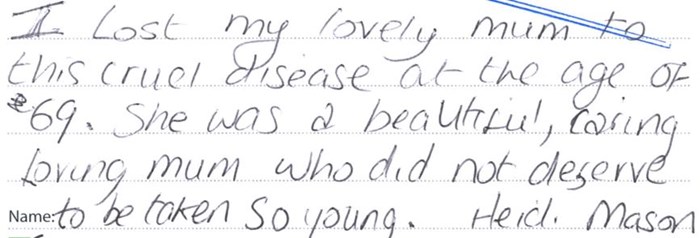 I Lost my lovely mum to
this cruel disease at the age of
69. She was a beautiful, caring
loving mum who did not deserve
Name: to be taken so young. Heidi Mason